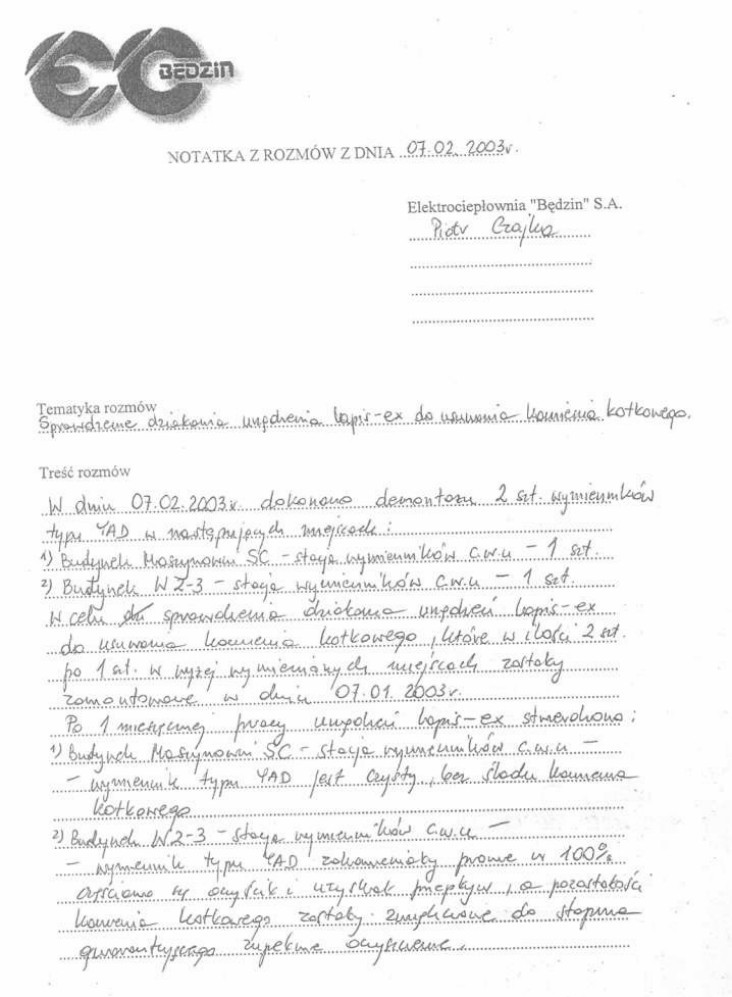 EC BĘDZIN
NOTATKA Z ROZMÓW Z DNIA 07.02.2003r.
Elektrociepłownia "Będzin" S.A.
Piotr Czajka
Tematyka rozmów
Sprawdzenie działania urządzenia lapis-ex do usuwania kamienia kotkowego.
Treść rozmów
W dniu 07.02.2003r. dokonano demontażu 2 szt. wymienników
typu JAD w następujących miejscach:
1) Budynek Maszynowni SC - stacja wymienników c.w.u - 1 szt.
2) Budynek WZ-3 - stacja wymienników c.w.u - 1 szt.
W celu sprawdzenia działania urządzeń lapis-ex
do usuwania kamienia kotkowego, które w ilości 2 szt.
po 1 szt. w wyżej wymienionych miejscach zostały
zamontowane w dniu 07.01.2003r.
Po 1 miesięcznej pracy urządzeń lapis-ex stwierdzono:
1) Budynek Maszynowni SC - stacja wymienników c.w.u -
- wymiennik typu JAD jest czysty, bez śladu kamienia
kotkowego
2) Budynek WZ-3 - stacja wymienników c.w.u -
- wymiennik typu JAD zakamieniały prawie w 100%
częściowo się oczyścił i uzyskał przepływ, a pozostałości
kamienia kotkowego zostały zmiękczone do stopnia
gwarantującego zupełne oczyszczenie.